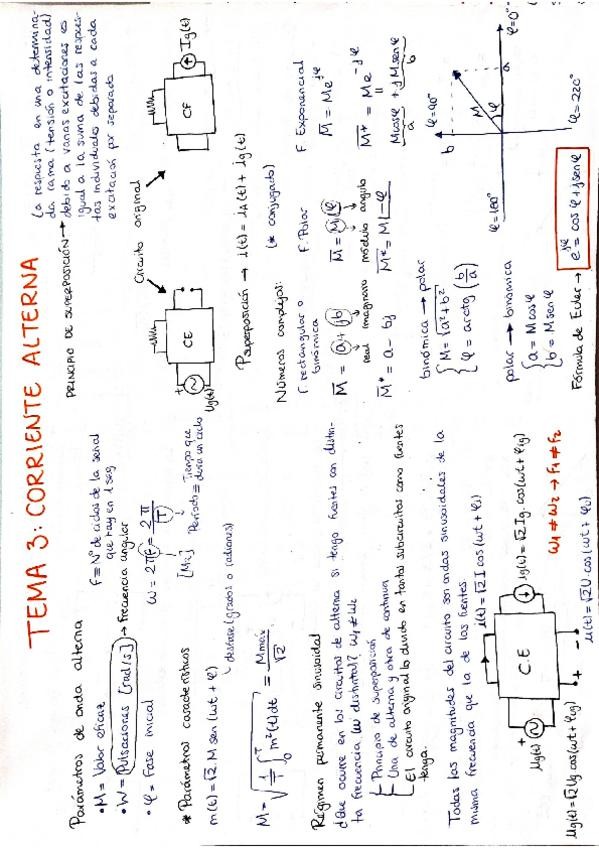 TEMA 3: CORRIENTE ALTERNA
Parámetros de onda alterna
• M = Valor eficaz
• W = Pulsaciones [rad/s] → Frecuencia angular
• φ = Fase inicial
F = Nº de ciclos de la señal
que hay en 1 seg
W = 2πF = 2π/T
[Hz]
Periodo = Tiempo que
dura un ciclo
* Parámetros característicos
m(t) = √2 · M sen (wt + φ)
desfase (grados o radianes)
M = √(1/T ∫₀ᵀ m²(t)dt) = Mmax/√2
Régimen permanente sinusoidal
¿Que ocurre en los circuitos de alterna si tengo fuentes con distin-
ta frecuencia (w distinta)? W₁ ≠ W₂
Principio de superposición
Una de alterna y otra de continua
El circuito original lo divido en tantos subcircuitos como fuentes
tenga.
Todas las magnitudes del circuito son ondas sinusoidales de la
misma frecuencia que la de las fuentes
i(t) = √2 I cos (wt + φi)
Ug(t)
C.E
Ig(t) = √2 Ig · cos(wt + φig)
Ug(t) = √2 Ug cos(wt + φug)
U(t) = √2 U · cos (wt + φu)
W₁ ≠ W₂ → F₁ ≠ F₂
PRINCIPIO DE SUPERPOSICIÓN →
La respuesta en una determina-
da rama (tensión o intensidad)
debido a varias excitaciones es
igual a la suma de las respues-
tas individuales debidas a cada
excitación por separado
Circuito original
Ug(t)
CE
CF
Ig(t)
Superposición → i(t) = iA(t) + ig(t)
Números complejos:
(* conjugado)
F rectangular o
binómica
M = a + jb
real imaginaria
M* = a - bj
F. Polar
M = M|φ
módulo ángulo
M* = M|-φ
F. Exponencial
M = Me^jφ
M* = Me^-jφ
Mcosφ + jMsenφ
a b
binómica → polar
M = √a²+b²
φ = arctg (b/a)
polar → binómica
a = M cosφ
b = M senφ
φ=90°
b
M
φ
a
φ=0°
φ=180°
φ=220°
Fórmula de Euler → e^jφ = cos φ + j senφ